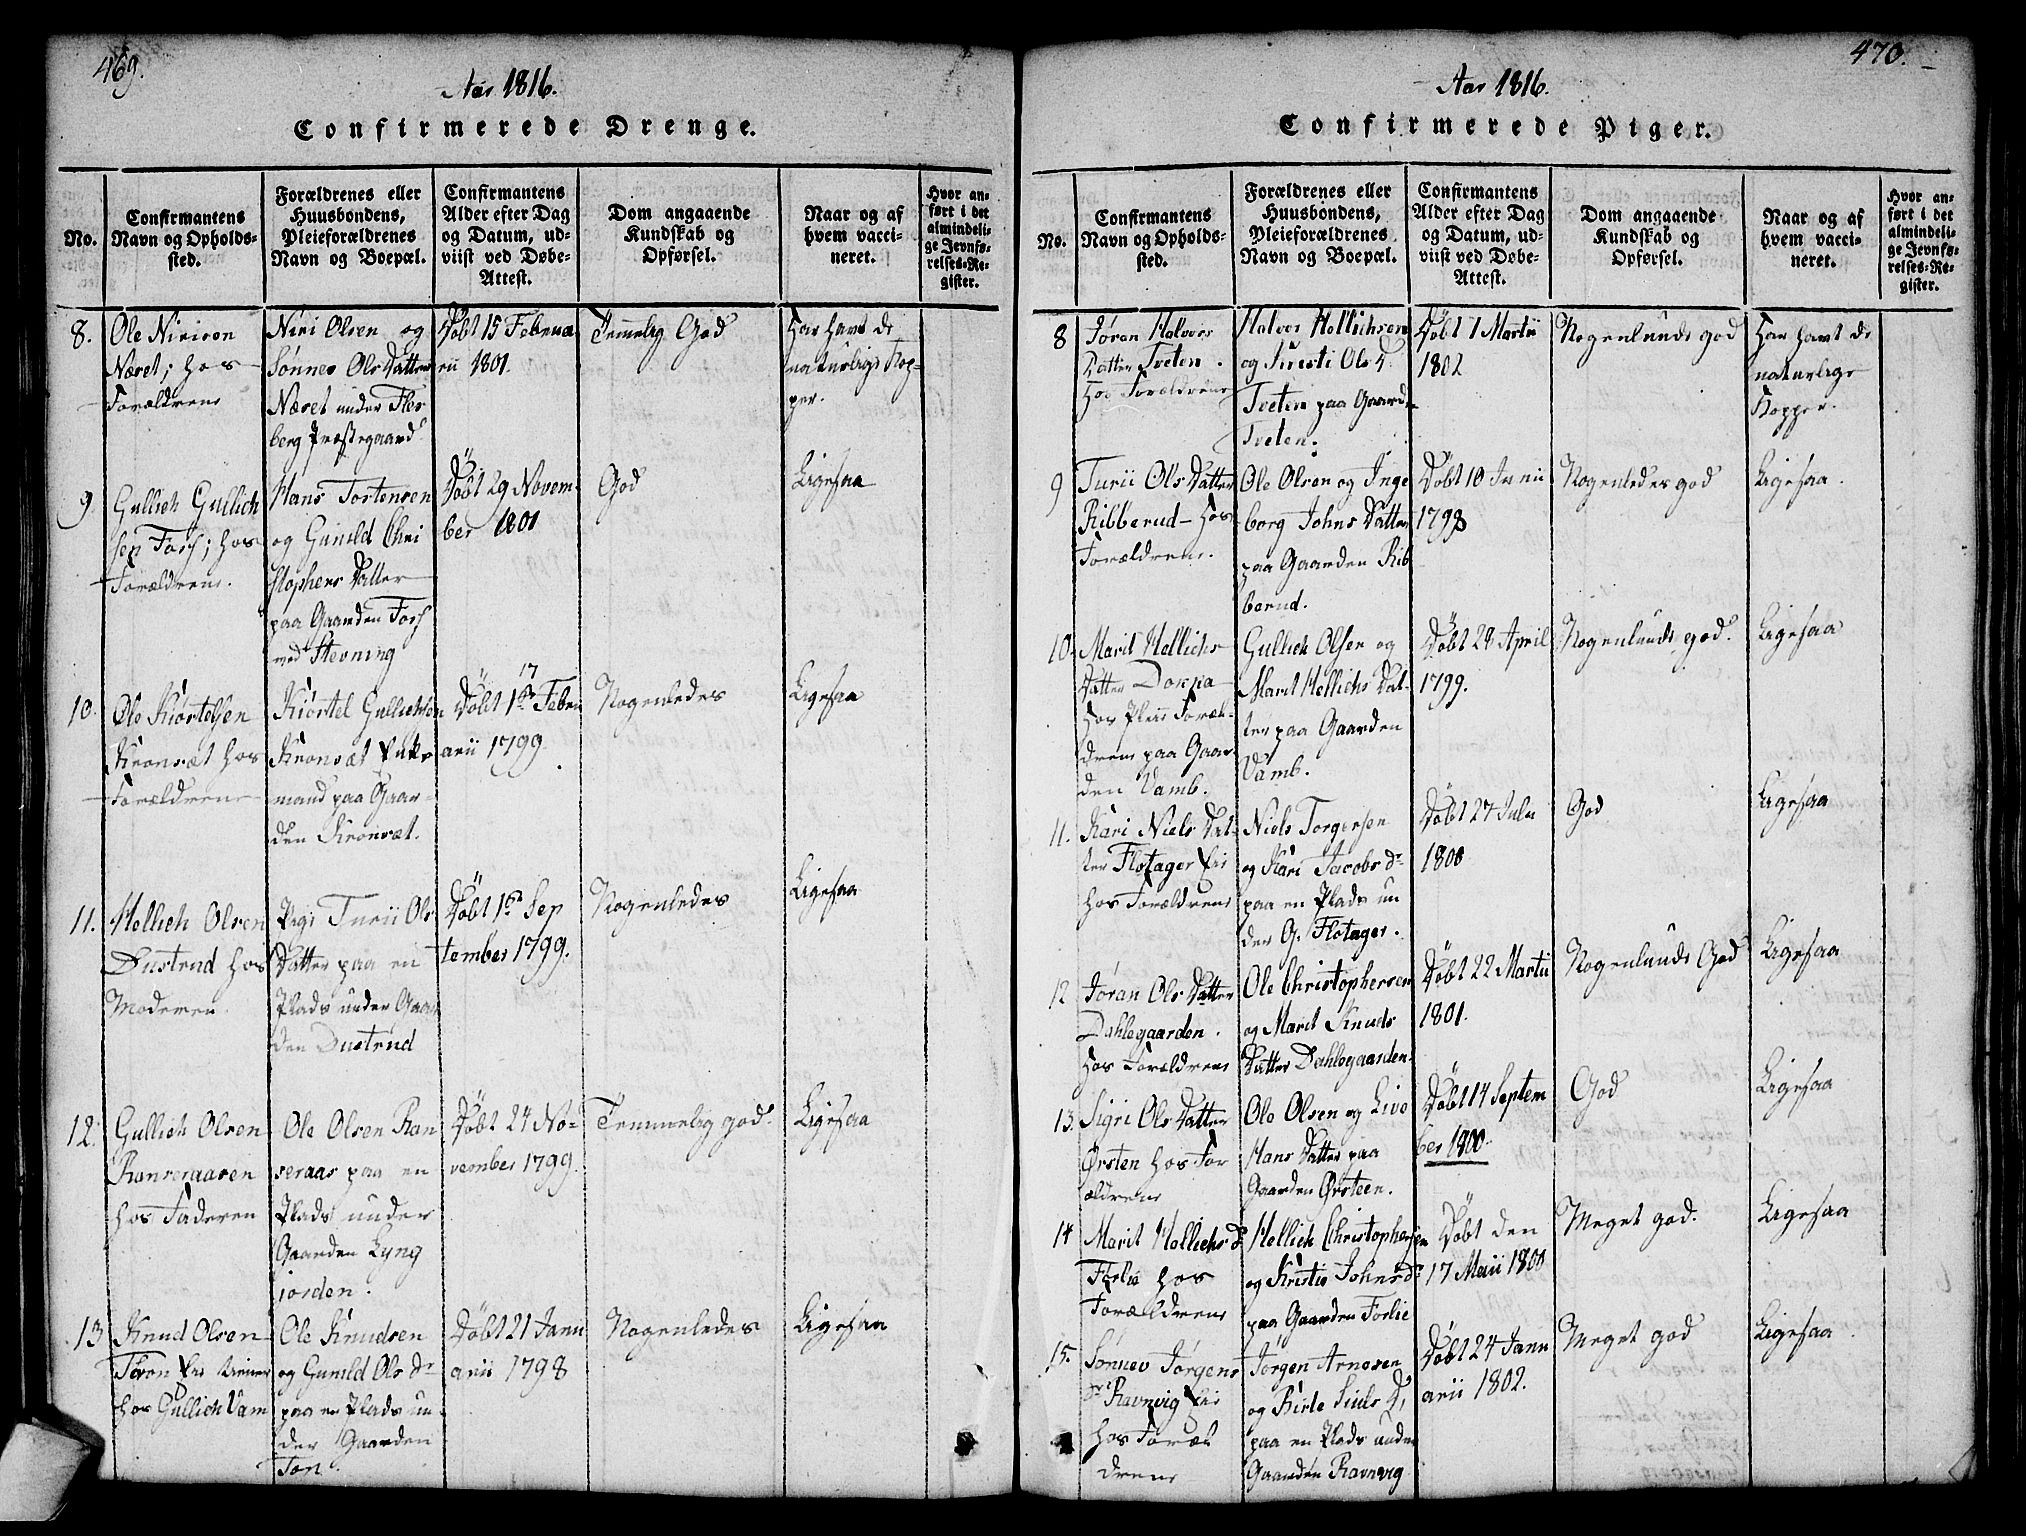 469.
Aar 1816.
Confirmerede Drenge.
No.
Confirmantens
Navn og Opholds-
sted.
Forældrenes eller
Huusbondens,
Pleieforældrenes
Navn og Boepæl.
Confirmantens
Alder efter Dag
og Datum, ud-
viist ved Døbe-
Attest.
Dom angaaende
Kundskab og
Opførsel.
Naar og af
hvem vacci-
neret.
Hvor an-
ført i det
almindeli-
ge Jevnfø-
relses-Re-
gister.
8.
Ole Nirisen
Næset; hos
Forældrene
Niri Olsen og
Sønnev Ols Datter
Næset under Fles
berg Præstegaard
Døbt 15 Februa
rii 1801.
Temmelig God
Har havt de
naturlige Kop-
per.
9
Gullich Gullich
sen Fosf; hos
Forældrene.
Hans Tostensen
og Gunild Chri
stophers Datter
paa Gaarden Fosf
ved Stevning
Døbt 29 Novem-
ber 1801
God
Ligesaa
10.
Ole Kiørtelsen
Kronsæt hos
Forældrene
Kiørtel Gullichsen
Kronsæt Enke-
mand paa Gaar-
den Kronsæt.
17
Døbt 1ste Febru
arii 1799.
Nogenledes
Ligesaa
11.
Hellich Olsen
Dustrud hos
Moderen
Pige Turii Ols
Datter paa en
Plads under Gaar
den Dustrud
Døbt 1ste Sep
tember 1799.
Nogenledes
Ligesaa
12.
Gullich Olsen
Ranseraasen
hos Faderen
Ole Olsen Ran
seraas paa en
Plads under
Gaarden Lyng
jorden.
Døbt 24 No-
vember 1799.
Temmelig god.
Ligesaa
13
Knud Olsen
hos Gullich Vam
Ole Knudsen
og Gunild Ols Dr
paa en Plads un
der Gaarden
Døbt 21 Janu
arii 1798
Nogenledes
Ligesaa
470.
Aar 1816.
Confirmerede Piger.
No.
Confirmantens
Navn og Opholds-
sted.
Forældrenes eller
Huusbondens,
Pleieforældrenes
Navn og Boepæl.
Confirmantens
Alder efter Dag
og Datum, ud-
viist ved Døbe-
Attest.
Dom angaaende
Kundskab og
Opførsel.
Naar og af
hvem vacci-
neret.
Hvor an-
ført i det
almindeli-
ge Jevnfø-
relses-Re-
gister.
8
Jøran Halvors
Datter Tveten.
Hos Forældrene
Halvor Hellichsen
og Kiersti Ols D
Tveten paa Gaarden
Tveten.
Døbt 7 Martii
1802
Nogenlunde god
Har havt de
naturlige
Kopper.
9
Turii Ols Datter
Ribberud - Hos
Forældrene.
Ole Olsen og Inge
borg Johns Datter
paa Gaarden Rib
berud.
Døbt 10 Junii
1798
Nogenledes god
Ligesaa.
10.
Marit Hellichs
Datter
Hos Pleie Foræl-
drene paa Gaar-
den Vamb.
Gullich Olsen og
Marit Hellichs Dat-
ter paa Gaarden
Vamb.
Døbt 28 April
1799.
Nogenlunde god.
Ligesaa
11.
Kari Niels Dat-
ter Flotager Eie
hos Forældrene
Niels Torgersen
og Kari Jacobs Dr
paa en Plads un
der G. Flotager.
Døbt 27 Julii
1800
God
Ligesaa
12
Jøran Ols Datter
Dahlegaarden.
Hos Forældrene
Ole Christophersen
og Marit Knuds
Datter Dahlegaarden.
Døbt 22 Martii
1801.
Nogenlunde God
Ligesaa
13.
Sigri Ols Datter
Ørsten hos For
ældrene
Ole Olsen og Live
Hans Datter paa
Gaarden Ørsteen.
Døbt 14 Septem
ber 1800.
God
Ligesaa
14
Marit Hellichs D
Forlie hos
Forældrene
Hellich Christophersen
og Kirstie Johnsdr
paa Gaarden Forlie
Døbt den
17 Maii 1800
Meget god.
Ligesaa
15.
Sønnev Jørgens
Dr Ravnvig Eie
hos Foræl
drene
Jørgen Arnesen
og Birte Siuls D,
paa en Plads under
Gaarden Ravnvig
Døbt 24 Janu
arii 1802.
Meget god
Ligesaa